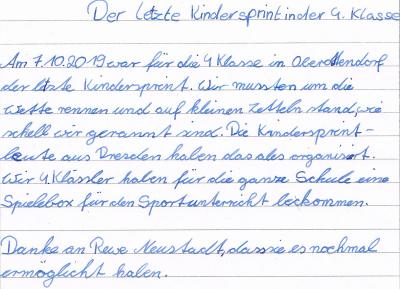 Der letzte Kindersprint in der 4. Klasse
Am 7.10.2019 war für die 4 Klasse in Oberottendorf
der letzte Kindersprint. Wir mussten um die
Wette rennen und auf kleinen Zetteln stand, wie
schell wir gerannt sind. Die Kindersprint-
leute aus Dresden haben das ales organisirt.
Wir 4. Klässler haben für die ganze Schule eine
Spielebox für den Sportunterricht bekommen.
Danke an Rewe Neustadt, dass sie es nochmal
ermöglicht haben.